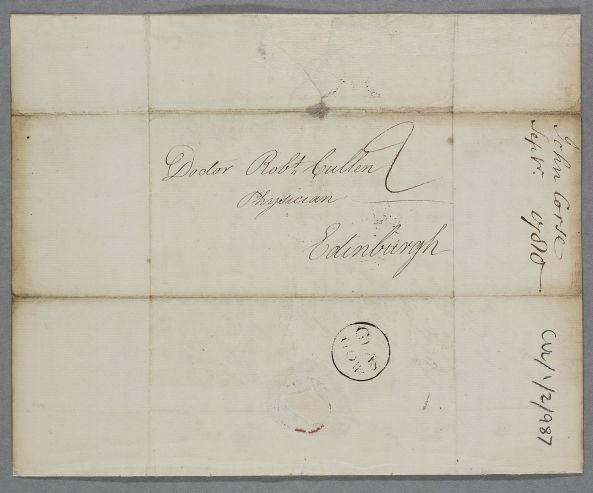 Doctor Robt. Cullen
2
Physician
Edinburgh
GLAS
GOW
John Corse
Septr. 1780
CUL/1/2/987